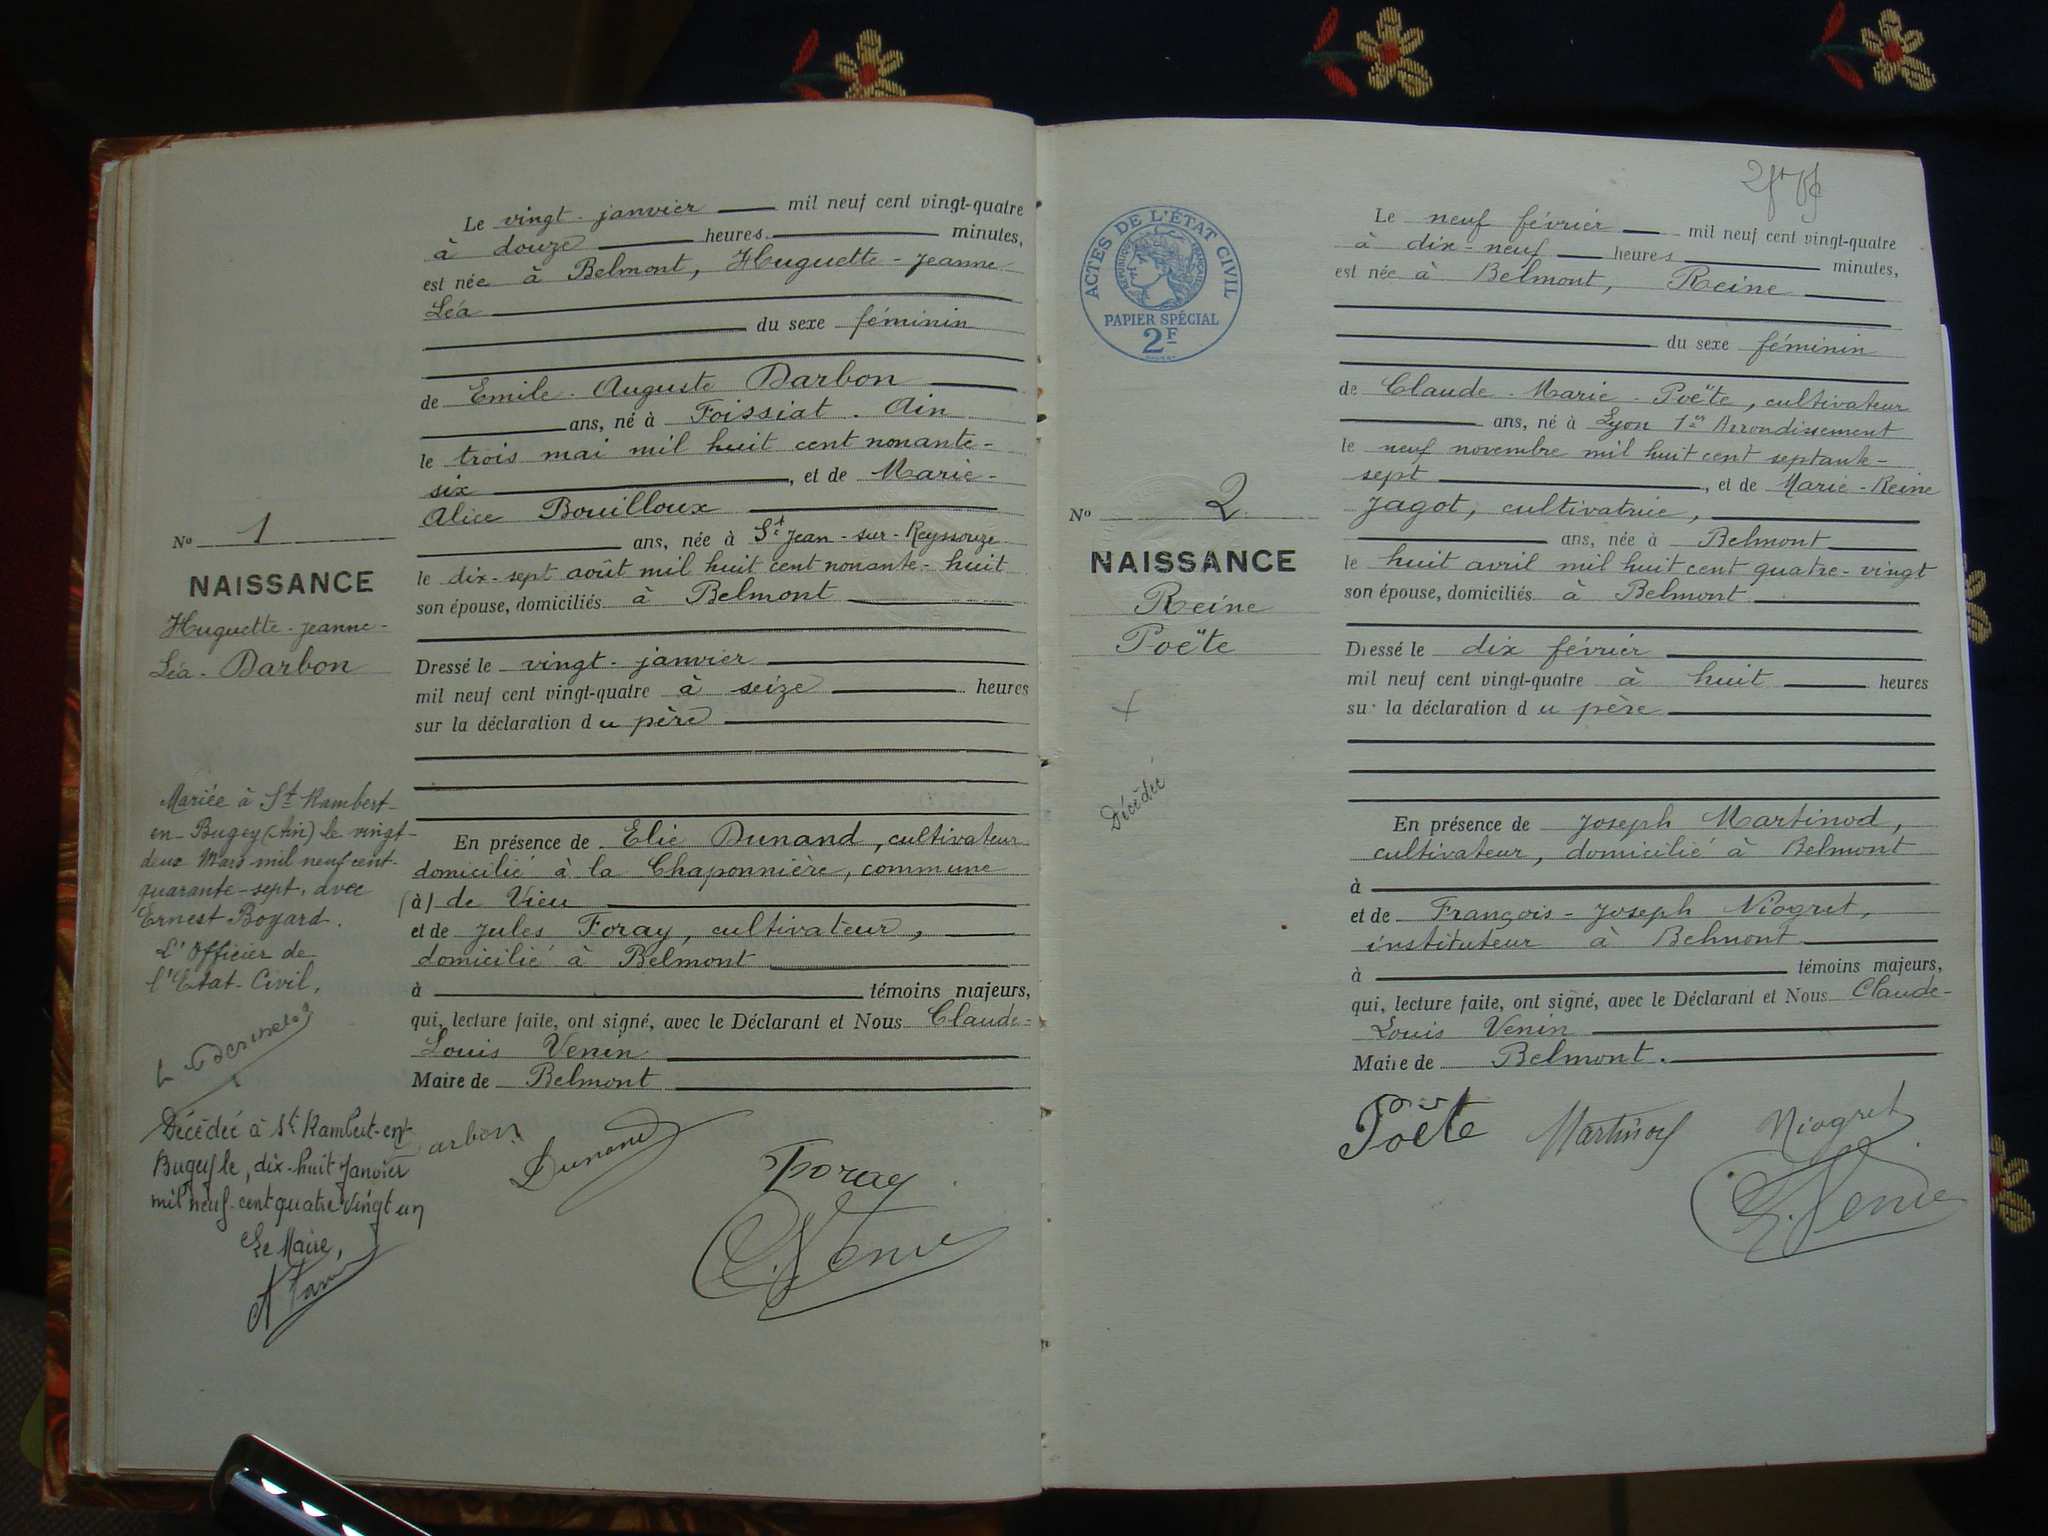 Le vingt-janvier mil neuf cent vingt-quatre
à douze heures minutes,
est née à Belmont, Huguette-Jeanne
Léa
du sexe féminin
de Emile-Auguste Darbon
ans, né à Foissiat. Ain
le trois mai mil huit cent nonante-
six, et de Marie-
Alice Bouilloux
ans, née à St Jean-sur-Reyssouze
le dix-sept août mil huit cent nonante-huit
son épouse, domiciliés à Belmont
Dressé le vingt-janvier
mil neuf cent vingt-quatre à seize heures
sur la déclaration du père
En présence de Elie Dunand, cultivateur
domicilié à la Chaponnière, commune
(à) de Vieu
et de Jules Foray, cultivateur,
domicilié à Belmont
à témoins majeurs,
qui, lecture faite, ont signé, avec le Déclarant et Nous Claude-
Louis Venin
Maire de Belmont
No 1
NAISSANCE
Huguette-Jeanne-
Léa-Darbon
Mariée à St Rambert-
en-Bugey (Ain) le vingt-
deux Mars mil neuf cent-
quarante-sept, avec
Ernest Boyard.
L'Officier de
l'Etat-Civil,
Décédée à St Rambert-en-
Bugey le, dix-huit Janvier
mil neuf-cent quatre vingt un
Le Maire,
arbon
Dunand
Foray
C. Venin
ACTES DE L'ÉTAT CIVIL
RÉPUBLIQUE FRANÇAISE
PAPIER SPÉCIAL
2F
Le neuf février mil neuf cent vingt-quatre
à dix-neuf heures minutes,
est née à Belmont, Reine
du sexe féminin
de Claude-Marie-Poëte, cultivateur
ans, né à Lyon 1er Arrondissement
le neuf novembre mil huit cent septante-
sept, et de Marie-Reine
Jagot, cultivatrice,
ans, née à Belmont
le huit avril mil huit cent quatre-vingt
son épouse, domiciliés à Belmont
Dressé le dix février
mil neuf cent vingt-quatre à huit heures
sur la déclaration du père
En présence de Joseph Martinod,
cultivateur, domicilié à Belmont
à
et de François-Joseph Niogret,
instituteur à Belmont
à témoins majeurs,
qui, lecture faite, ont signé, avec le Déclarant et Nous Claude-
Louis Venin
Maire de Belmont.
No 2
NAISSANCE
Reine
Poëte
Décédée
Poëte Martinod Niogret
C. Venin